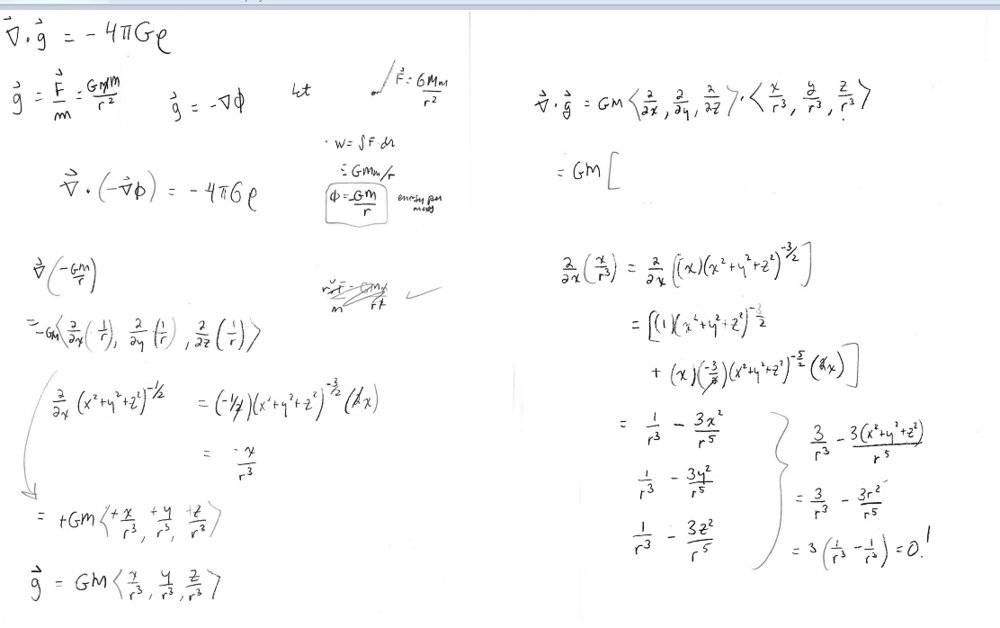 ∇⃗·g⃗ = -4πGρ
g⃗ = F⃗/m = GMm/r²   g⃗ = -∇Φ   let   F⃗ = GMm/r²
· W = ∫F·dr
= GMm/r
∇⃗·(-∇⃗Φ) = -4πGρ   Φ = -GM/r   energy per mass
∇⃗(-GM/r)
= -GM⟨∂/∂x(1/r), ∂/∂y(1/r), ∂/∂z(1/r)⟩
∂/∂x (x²+y²+z²)^(-1/2) = (-1/2)(x²+y²+z²)^(-3/2) (2x)
= -x/r³
= +GM⟨+x/r³, +y/r³, +z/r³⟩
g⃗ = GM⟨x/r³, y/r³, z/r³⟩
∇⃗·g⃗ = GM⟨∂/∂x, ∂/∂y, ∂/∂z⟩·⟨x/r³, y/r³, z/r³⟩
= GM[
∂/∂x(x/r³) = ∂/∂x[(x)(x²+y²+z²)^(-3/2)]
= [(1)(x²+y²+z²)^(-3/2)
+ (x)(-3/2)(x²+y²+z²)^(-5/2) (2x)]
= 1/r³ - 3x²/r⁵
1/r³ - 3y²/r⁵
1/r³ - 3z²/r⁵
3/r³ - 3(x²+y²+z²)/r⁵
= 3/r³ - 3r²/r⁵
= 3(1/r³ - 1/r³) = 0!